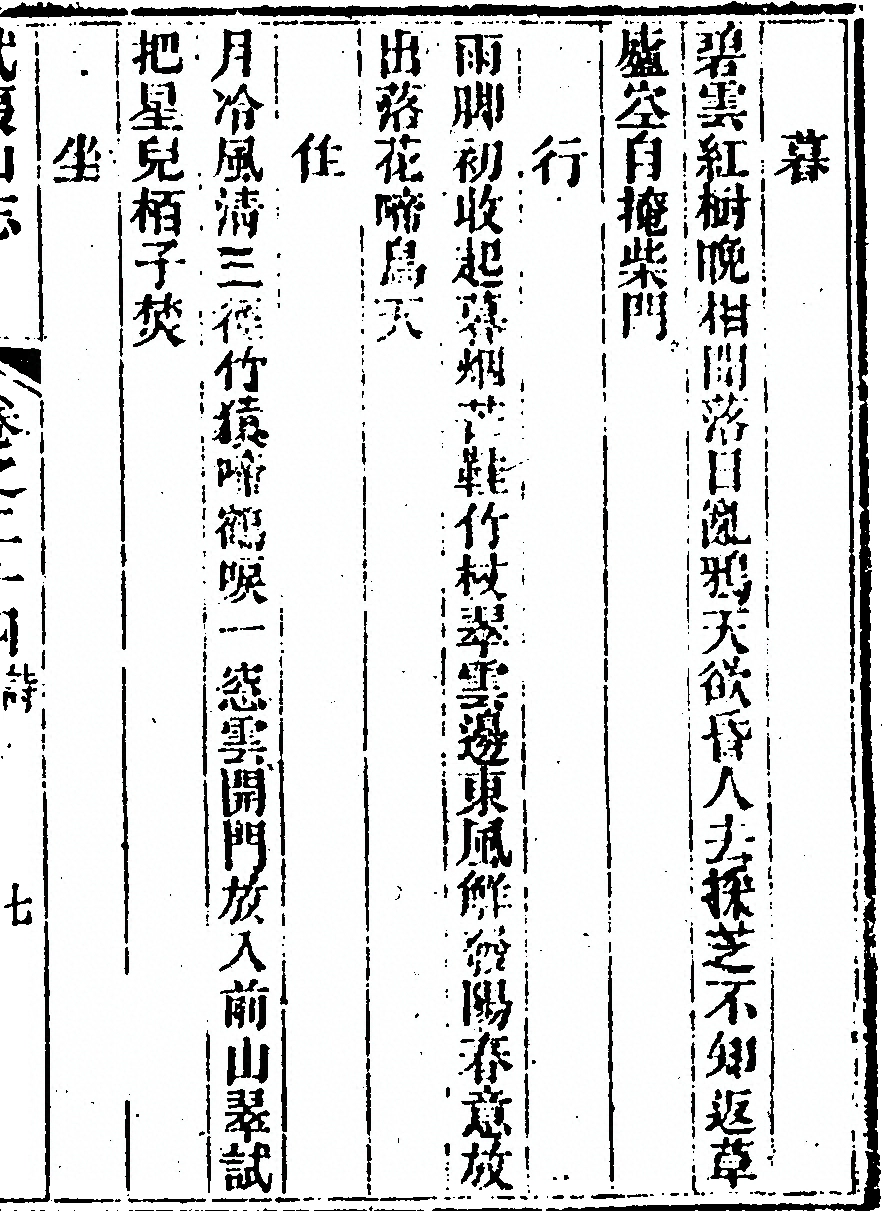 暮
碧雲紅樹晚相間落日亂鴉天欲昏人去採芝不知返草
廬空自掩柴門
行
雨脚初收起暮烟芒鞋竹杖翠雲邊東風觧發陽春意放
出落花啼鳥天
住
月冷風清三徑竹猿啼鶴唳一窓雲開門放入前山翠試
把星兒栢子焚
坐
武夷山志
卷之二十四詩
七